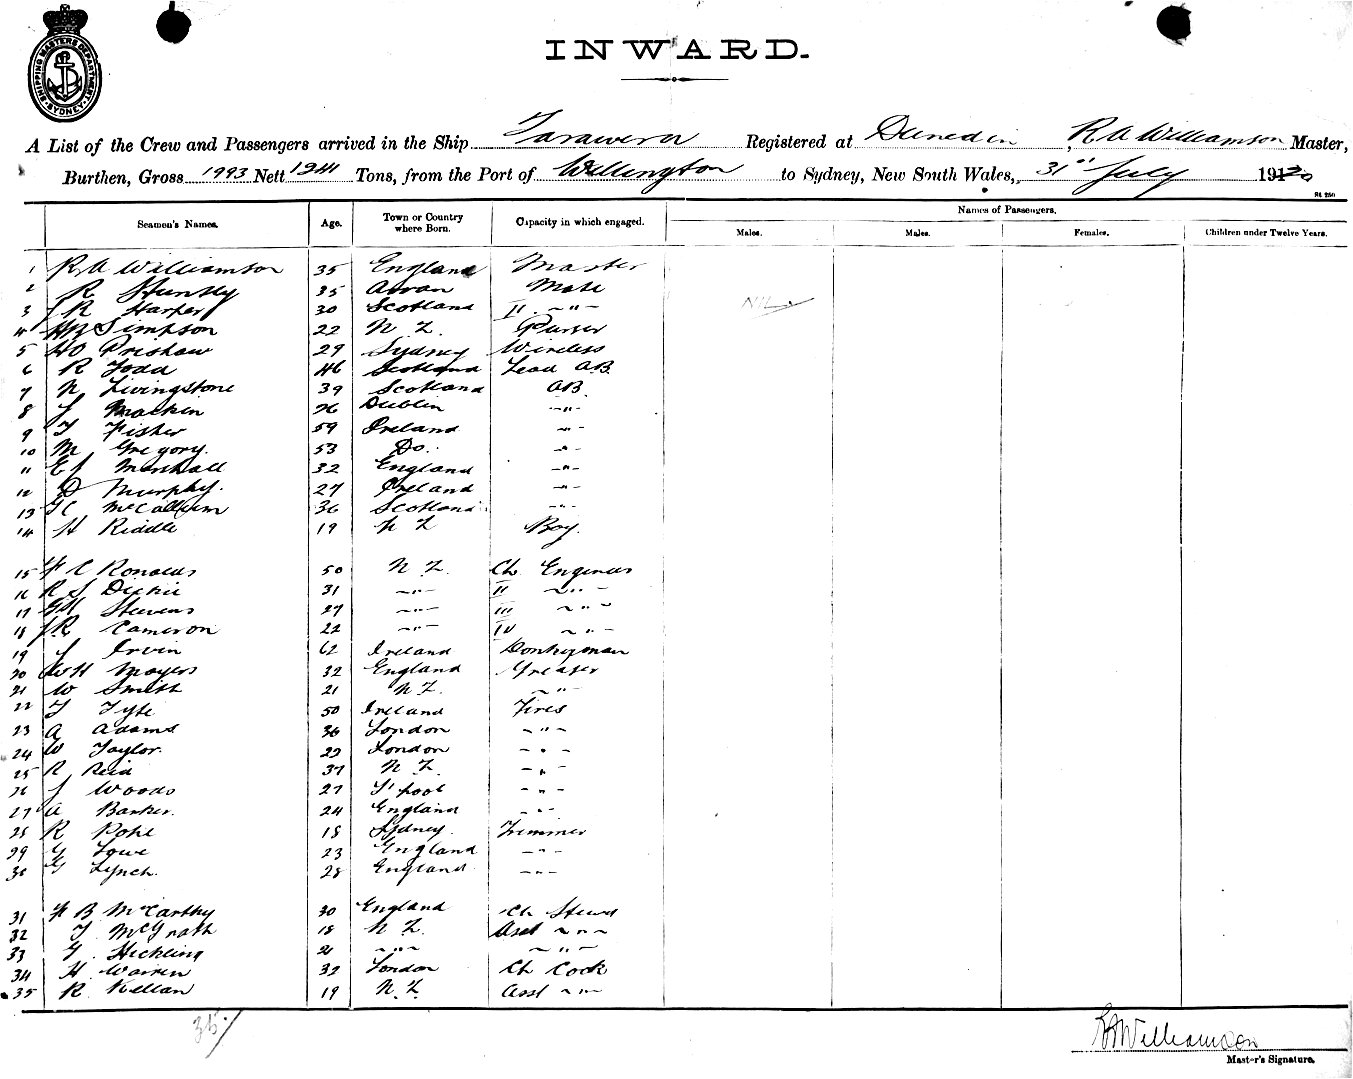 SHIPPING MASTERS DEPARTMENT SYDNEY
INWARD.
A List of the Crew and Passengers arrived in the Ship Tarawera Registered at Dunedin, R A Williamson Master,
Burthen, Gross 1993 Nett 1241 Tons, from the Port of Wellington to Sydney, New South Wales, 31st July 1920
Seamen's Names. Age. Town or Country where Born. Capacity in which engaged. Names of Passengers.
Males. Males. Females. Children under Twelve Years.
1 R A Williamson 35 England Master
2 J R Hunsly 35 Arran Mate
3 J R Harper 30 Scotland II -"- NIL
4 Simpson 22 N Z. Purser
5 HO Prishaw 29 Sydney Wireless
6 R Todd 46 Scotland Lead AB.
7 N Livingstone 39 Scotland AB.
8 J Mackin 26 Dublin -"-
9 T Fisher 59 Ireland -"-
10 M Gregory. 53 Do. -"-
11 E J Marshall 32 England -"-
12 D Murphy. 27 Ireland -"-
13 McCallum 36 Scotland -"-
14 H Riddle 19 N Z Boy.
15 C Ronalds 50 N Z. Ch. Engineer
16 R S Dickie 31 -"- II -"-
17 Stevens 27 -"- III -"-
18 J R Cameron 22 -"- IV -"-
19 J Irvin 62 Ireland Donkeyman
20 W H Mayers 32 England Greaser
21 W Smith 21 N Z. -"-
22 T Tyte 50 Ireland Fires
23 A Adams 36 London -"-
24 W Taylor. 29 London -"-
25 R Reid 37 N Z. -"-
26 J Woods 27 L'pool -"-
27 A Barker. 24 England -"-
28 R Pope 18 Sydney. Trimmer
29 G Lowe 23 England -"-
30 G Lynch. 28 England -"-
31 B McCarthy 30 England Ch Stewd
32 T McGrath 18 N Z. Asst -"-
33 G. Hickling 21 -"- -"-
34 H. Warren 32 London Ch Cook
35 R. Kellan 19 N. Z. Asst -"-
35
R A Williamson
Master's Signature.